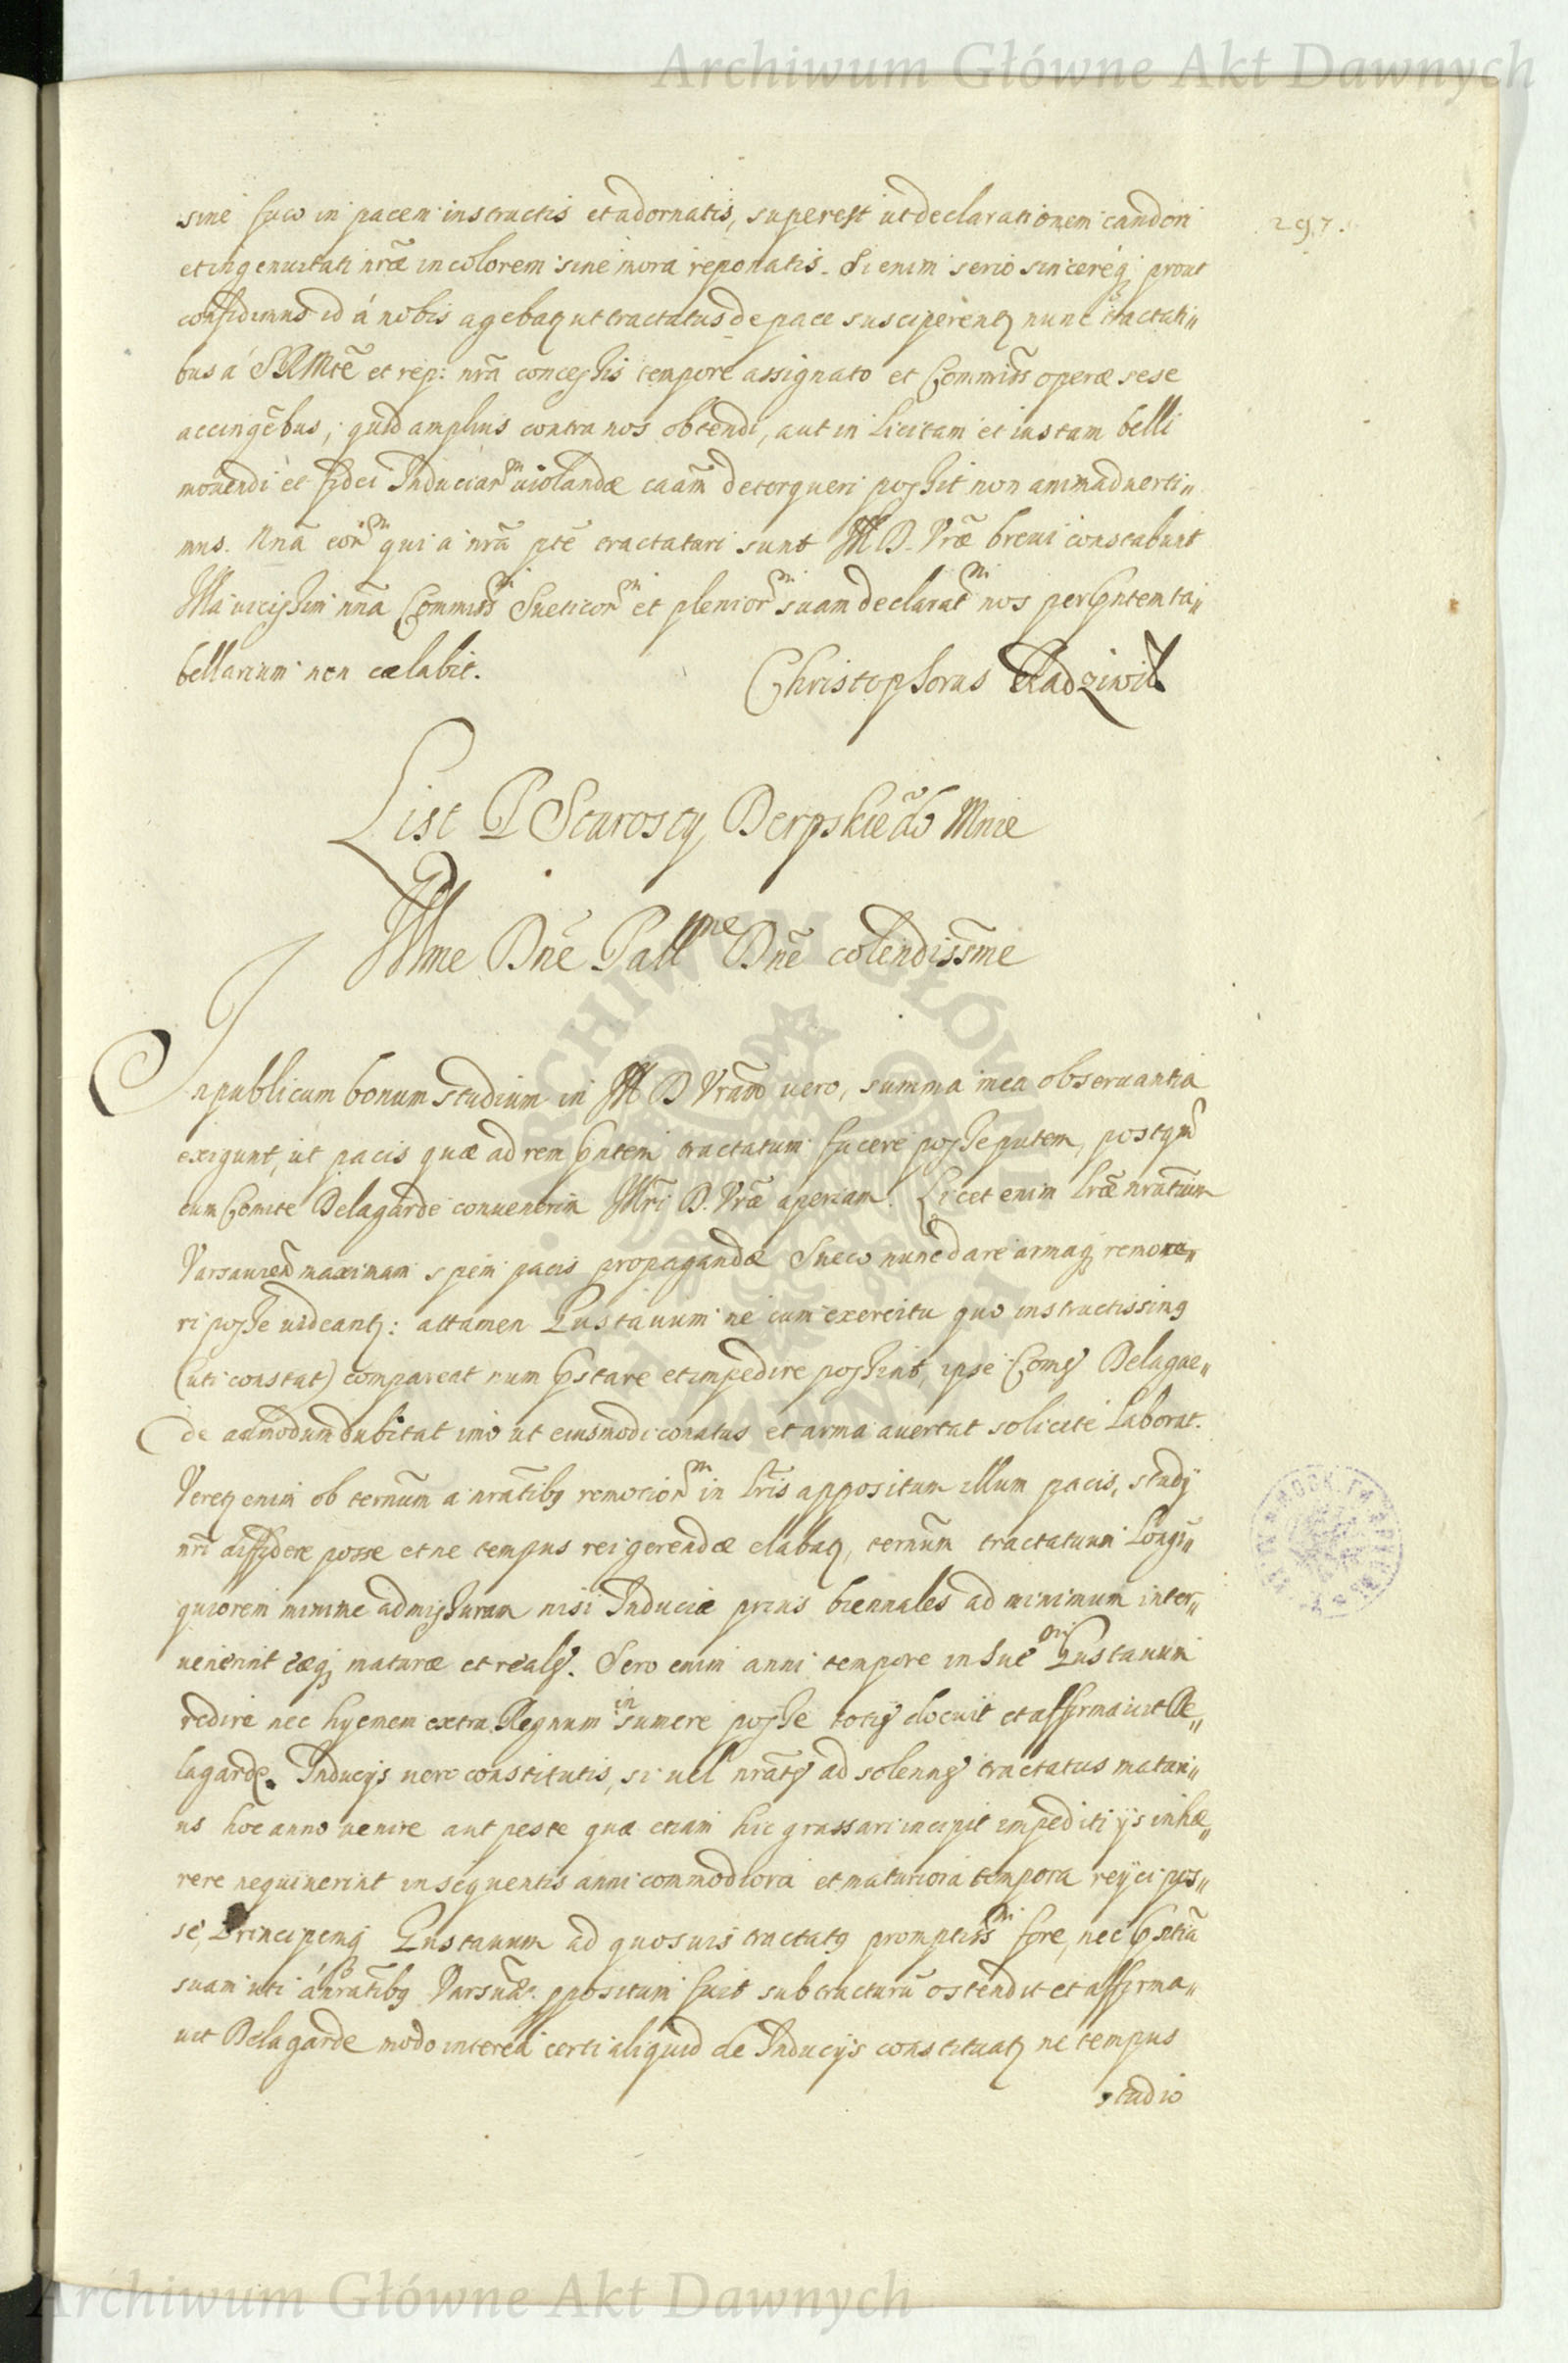 Archiwum Główne Akt Dawnych
297.
sine fuco in pacem instructis et adornatis, superest ut declarationem candori
et ingenuitati nr̃æ in colorem sine mora reponatis. Si enim serio sincereq; prout
confidimus id à nobis agebatz ut tractatus de pace susciperentz nunc tractati„
bus á SRMtẽ et rep: nrã concessis tempore assignato et Commissr̃s operæ sese
accingẽbus; quid amplius contra nos obtendi, aut in licitam et iustam belli
mouendi et fidei Induciarm uiolandæ caãm detorqueri possit non animaduerti„
mus. Nñã eorm qui a nrã ptẽ tractaturi sunt Ill D. Vræ̃ breui constabunt
Illa uicissim nñã Commissm Sueticorm et pleniorm suam declaratm nos per Pñtem ta„
bellarium non cælabit.
Christophorus Radziwił
List P Starosty Derpskieo do Mnie
Illme Dnẽ Pallme Dnẽ colendissme
In publicum bonum studium in Ill D Vram uero, summa mea obseruantia
exigunt, ut pacis quæ ad rem Pñtem tractatum facere posse putem, postqm̃
cum Comite Delagarde conuenerim Illri D. Vræ̃ aperiam. Licet enim lræ̃ nratium
Varsauien maximam spem pacis propagandæ Sueco nunc dare armaq; remoue„
ri posse uideantz: attamen Gustauum ne cum exercitu quo instructissimg
(uti constat) compareat num Pstare et impedire possint, ipse Comes Delagar„
de admodum dubitat imo ut eiusmodi conatus et arma auertat solicite laborat.
Veretz enim ob ternũm a nratibg remotiorm in lris appositum illum pacis, studij
nri diffidere posse et ne tempus rei gerendæ elabatz, ternũm tractatuum longi„
quiorem minime admissuram nisi Induciæ prius biennales ad minimum inter„
uenerint eæq; maturæ et reales. Sero enim anni tempore in Suem Gustauum
redire nec hyemem extra Regnum insumere posse toties docuit et affirmauit De„
lagarde. Inducijs uero constitutis, si uel nrates ad solennes tractatus maturi„
us hoc anno uenire aut peste quæ etiam hic grassari incipit impediti ijs inhæ„
rere nequiuerint in sequentis anni commodiora et maturiora tempora reijci pos„
se, Principemq; Gustauum ad quosuis tractatg promptissm fore, nec Pñtiã
suam uti á nratibg Varsauiæ ppositum fuit subtracturũ ostendit et affirma„
uit Delagarde modo interea certi aliquid de Inducijs constituatz ne tempus
studio
Archiwum Główne Akt Dawnych